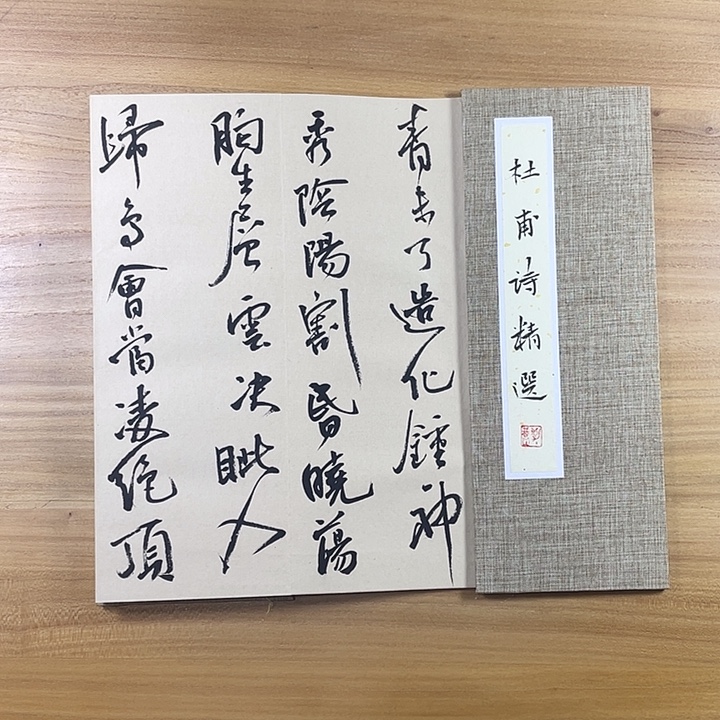 杜甫诗精選
青未了造化鍾神
秀陰陽割昏曉蕩
胸生层雲决眦入
歸鸟會當凌绝頂